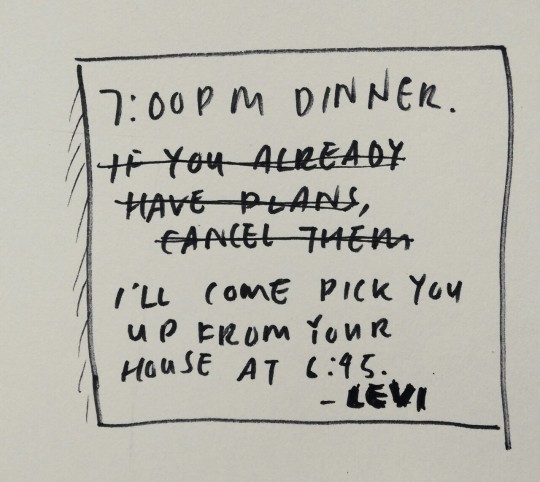 7:00PM DINNER.
IF YOU ALREADY
HAVE PLANS,
CANCEL THEM
I'LL COME PICK YOU
UP FROM YOUR
HOUSE AT 6:45.
- LEVI